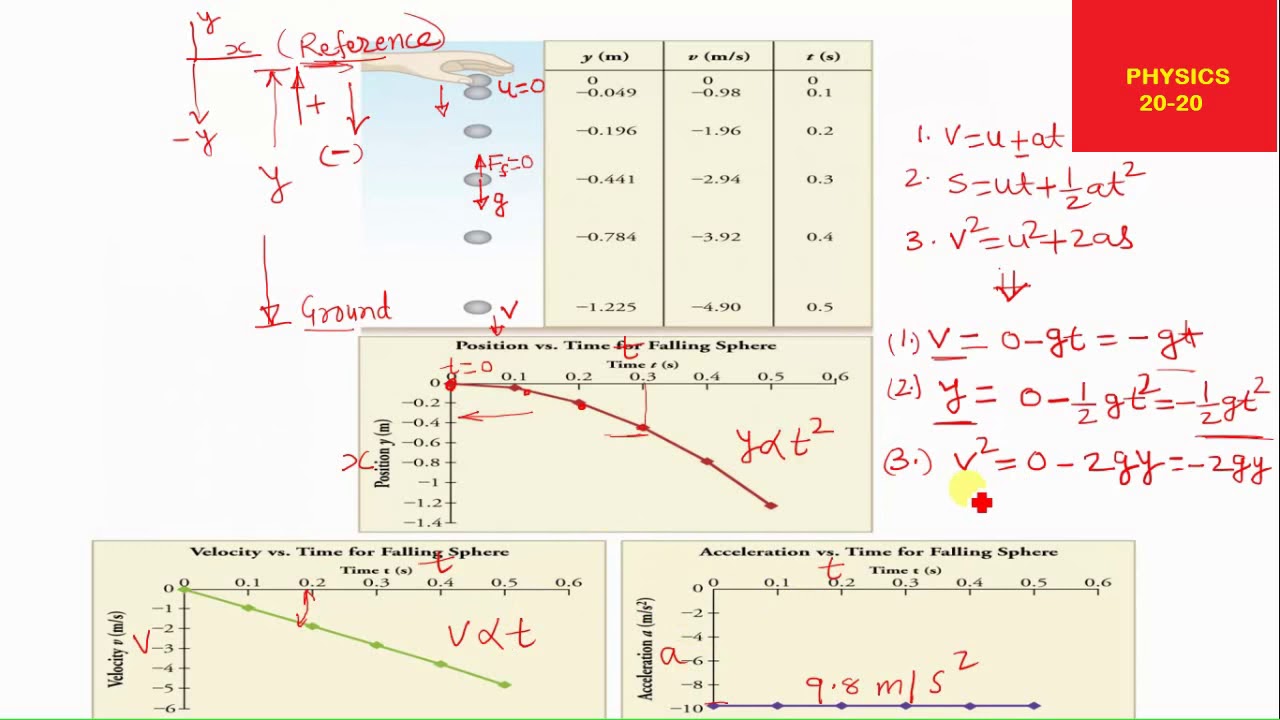 y
x (Reference)
-y
+
(-)
y
Ground
u=0
Fs=0
g
v
y (m) v (m/s) t (s)
0 0 0
−0.049 −0.98 0.1
−0.196 −1.96 0.2
−0.441 −2.94 0.3
−0.784 −3.92 0.4
−1.225 −4.90 0.5
PHYSICS
20-20
1. V=u±at
2. S=ut+½at²
3. V²=u²+2as
(1.) V = 0-gt = -gt
(2.) y = 0-½gt²=-½gt²
(3.) V²=0-2gy=-2gy
Position vs. Time for Falling Sphere
t
Time t (s)
t=0
0 0.1 0.2 0.3 0.4 0.5 0.6
0
−0.2
−0.4
−0.6
−0.8
−1
−1.2
−1.4
Position y (m)
x
y∝t²
Velocity vs. Time for Falling Sphere
Time t (s)
t
0 0.1 0.2 0.3 0.4 0.5 0.6
0
−1
−2
−3
−4
−5
−6
Velocity v (m/s)
V
V∝t
Acceleration vs. Time for Falling Sphere
Time t (s)
t
0 0.1 0.2 0.3 0.4 0.5 0.6
0
−2
−4
−6
−8
−10
Acceleration a (m/s²)
a
9.8 m/s²